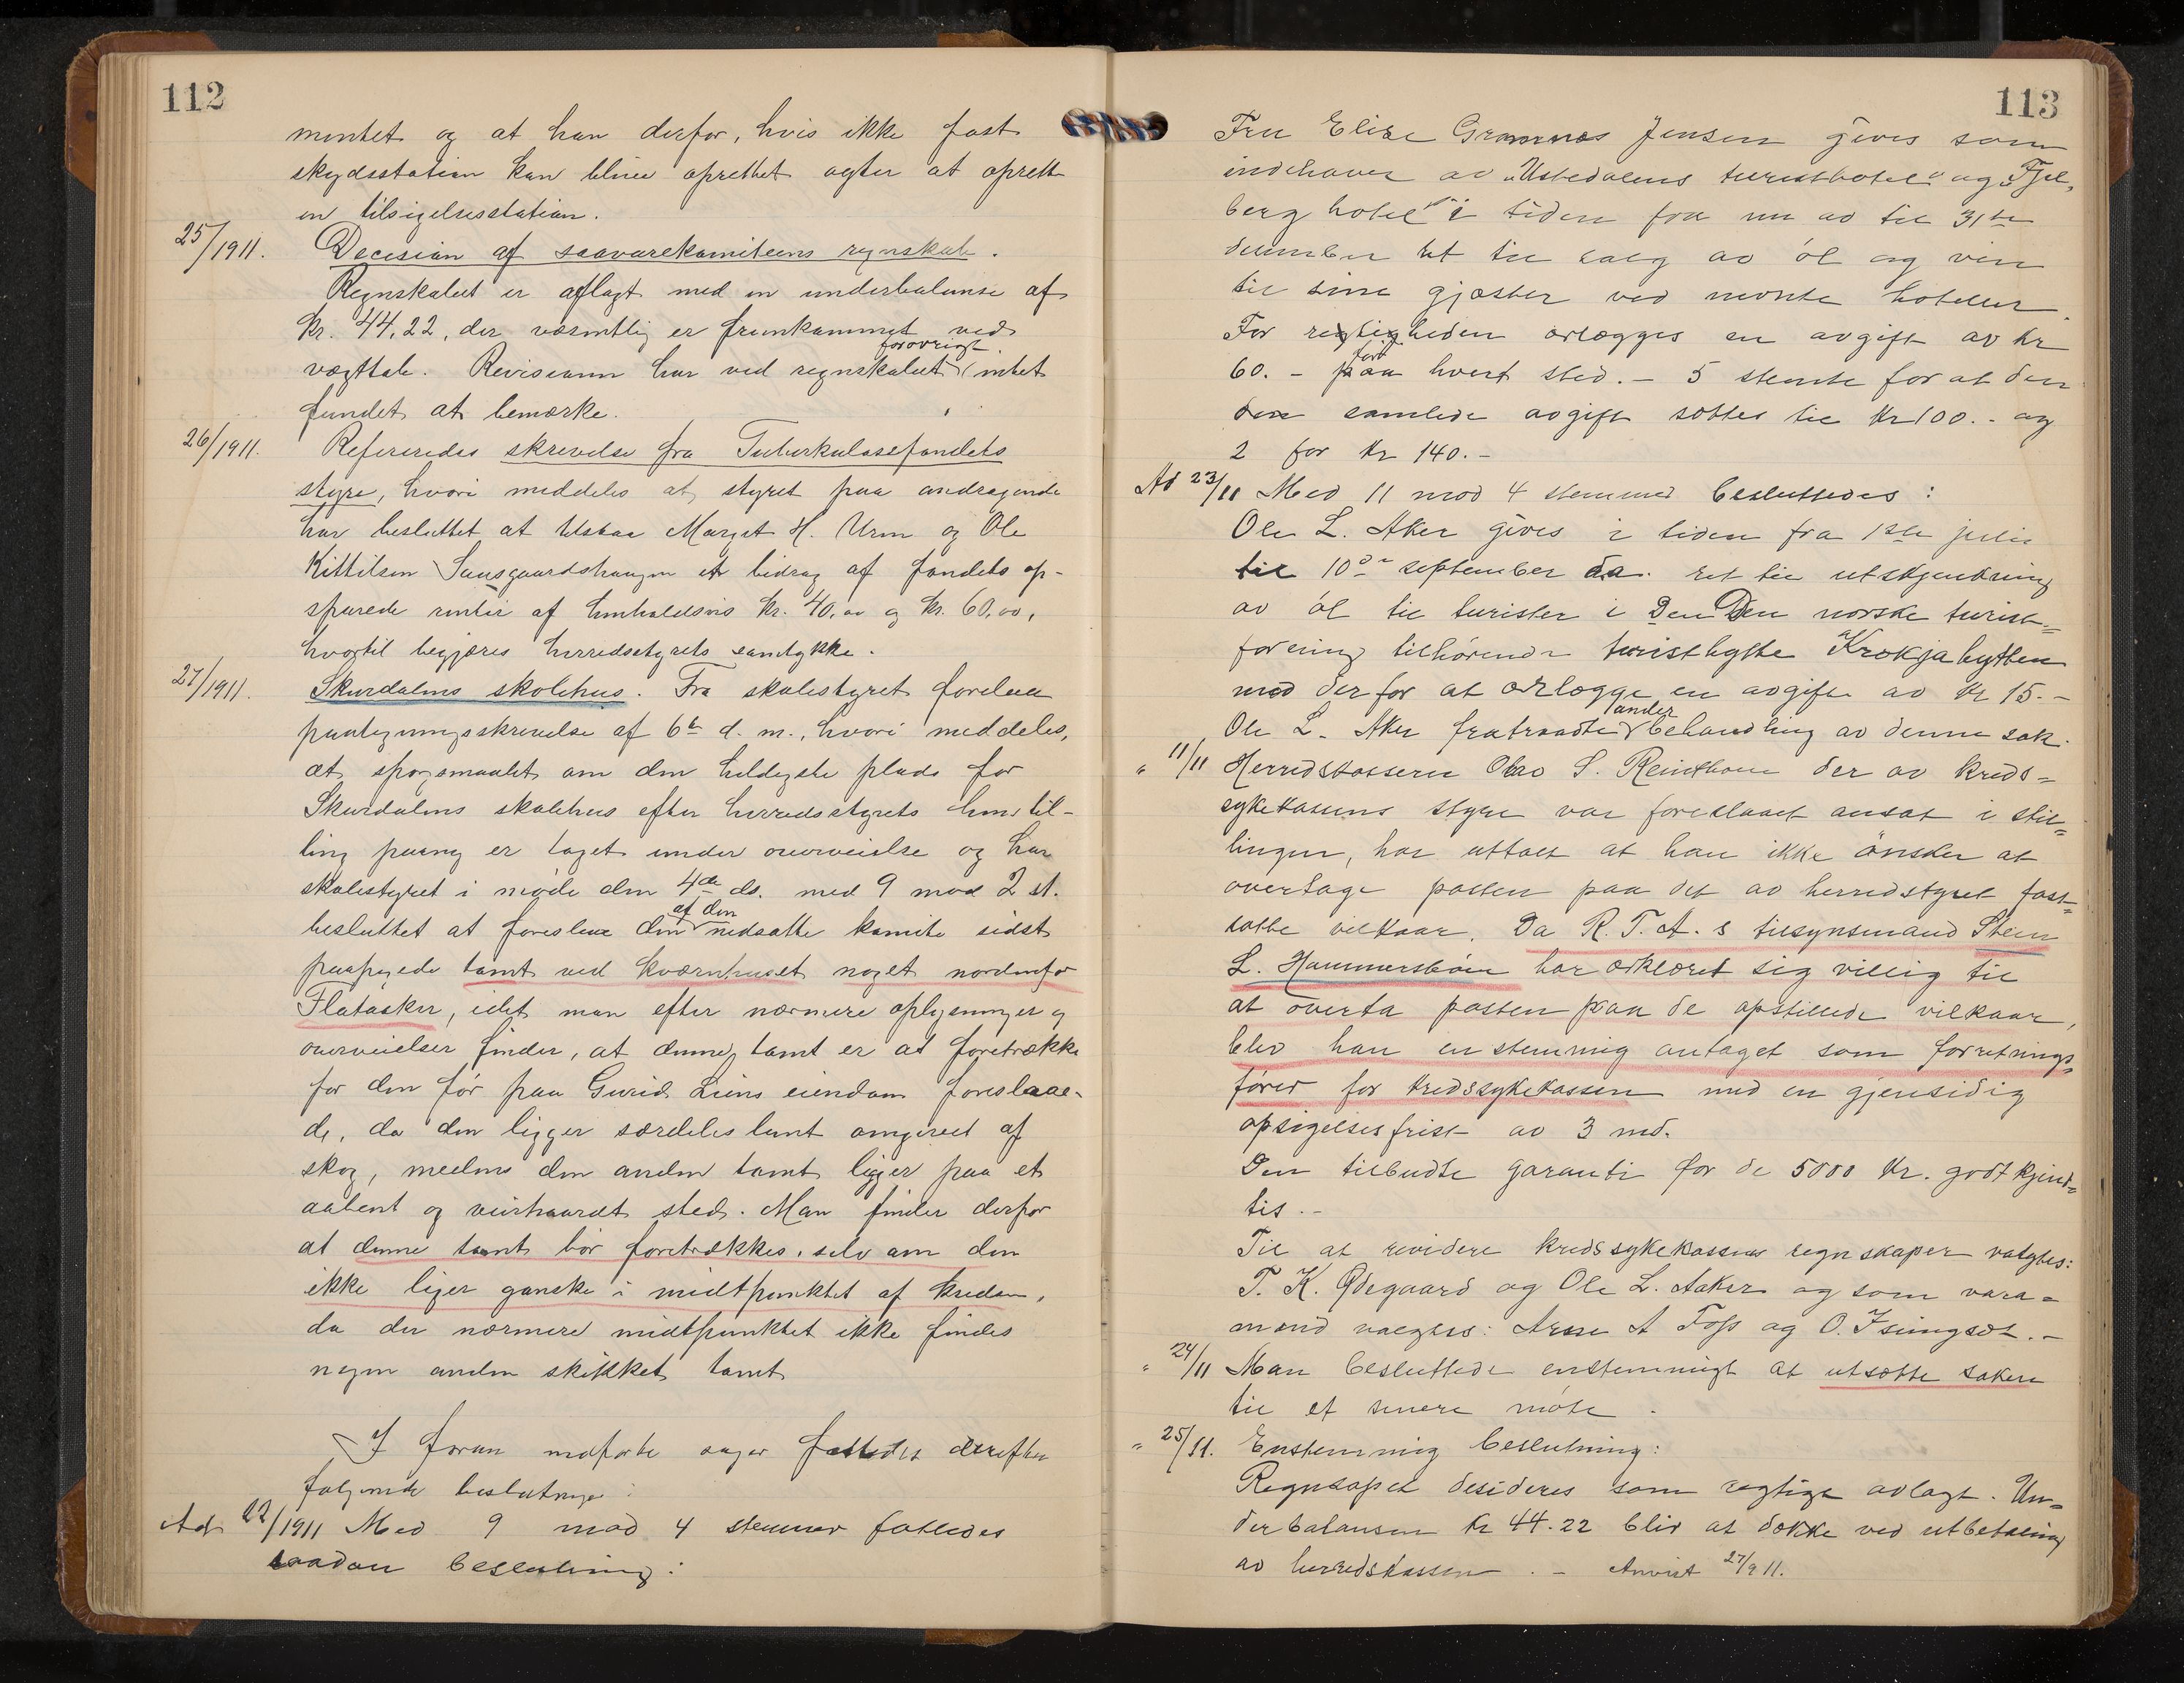 112
mentet og at han derfor, hvis ikke fast
skydsstation kan blive oprettet agter at oprette
en tilsigelsesstation.
25/1911. Decision af saavarekomiteens regnskab.
Regnskabet er aflagt med en underbalanse af
kr. 44,22, der væsentlig er fremkommet ved
vægttab. Revisionen har ved regnskabet forøvrigt intet
fundet at bemærke.
26/1911. Refereredes skrivelse fra Tuberkulosefondets
styre, hvori meddeles at styret paa andragende
har besluttet at tilstaa Margit H. Urm og Ole
Kittilsen Sausgaardshaugen et bidrag af fondets op-
sparede renter af henholdsvis kr. 40,00 og kr. 60,00,
hvortil begjæres herredsstyrets samtykke.
27/1911. Skurdalens skolehus. Fra skolestyret forelaa
paategningsskrivelse af 6te d. m., hvori meddeles,
at spørgsmaalet om den heldigste plads for
Skurdalens skolehus efter herredsstyrets henstil-
ling paany er taget under overveielse og har
skolestyret i møde den 4de ds. med 9 mod 2 st.
besluttet at foreslaa den af den nedsatte komite sidst
paapegede tomt ved kværnhuset noget nordenfor
Flataaker, idet man efter nærmere oplysninger og
overveielser finder, at denne tomt er at foretrække
for den før paa Guvid Liens eiendom foreslaae-
de, da den ligger særdeles lunt omgivet af
skog, medens den anden tomt ligger paa et
aabent og veirhaardt sted. Man finder derfor
at denne tomt bør foretrækkes, selv om den
ikke liger ganske i midtpunktet af kredsen,
da der nærmere midtpunktet ikke findes
negen anden skikket tomt
I foran indførte sager fattedes derefter
følgende beslutninger:
Ad 22/1911 Med 9 mod 4 stemmer fattedes
saadan beslutning:
113
Fru Elise Jensen gives som
indehaver av "Ustedalens turisthotel" og "Fjel-
berg hotel" i tiden fra nu av til 31te
december ret til salg av øl og vin
til sine gjæster ved nevnte hoteller.
For regtigheden erlægges en avgift av kr
60.- for hvert sted. - 5 stemte for at den
den samlede avgift sættes til Kr 100.- og
2 for Kr 140.-
Ad 23/11 Med 11 mod 4 stemmer besluttedes:
Ole L. Aker gives i tiden fra 1ste juli
til 10de september d.a. ret til utskjenkning
av øl til turister i Den Den norske turist-
forening tilhørende turisthytte Krækjahytten
mod derfor at erlægge en avgift av Kr 15.-
Ole L. Aker fratraadte under behandling av denne sak.
" 11/11 Herredskasserer Olav S. Reinton der av kreds-
sykekassens styre var foreslaaet ansat i stil-
lingen, har uttalt at han ikke ønsker at
overtage posten paa det av herredstyret fast-
satte vilkaar. Da R. T. A. s tilsynsmand Sten
L. Hammersbøen har erklæret sig villig til
at overta posten paa de opstillede vilkaar,
blev han enstemmig antaget som forretnings-
fører for kredssykekassen med en gjensidig
opsigelsesfrist av 3 md.
Den tilbudte garanti for de 5000 Kr. godtkjend-
tes.-
Til at revidere kredssykekassens regnskaper valgtes:
T. K. Ødegaard og Ole L. Aaker og som vara-
mænd valgtes: A Foss og O. .-
" 24/11 Man besluttede enstemmigt at utsætte saken
til et senere møte.
" 25/11. Enstemmig beslutning:
Regnskapet desideres som rigtigt avlagt. Un-
derbalansen Kr 44.22 blir at dække ved utbetaling
av herredskassen.- Anvist 27/9 11.